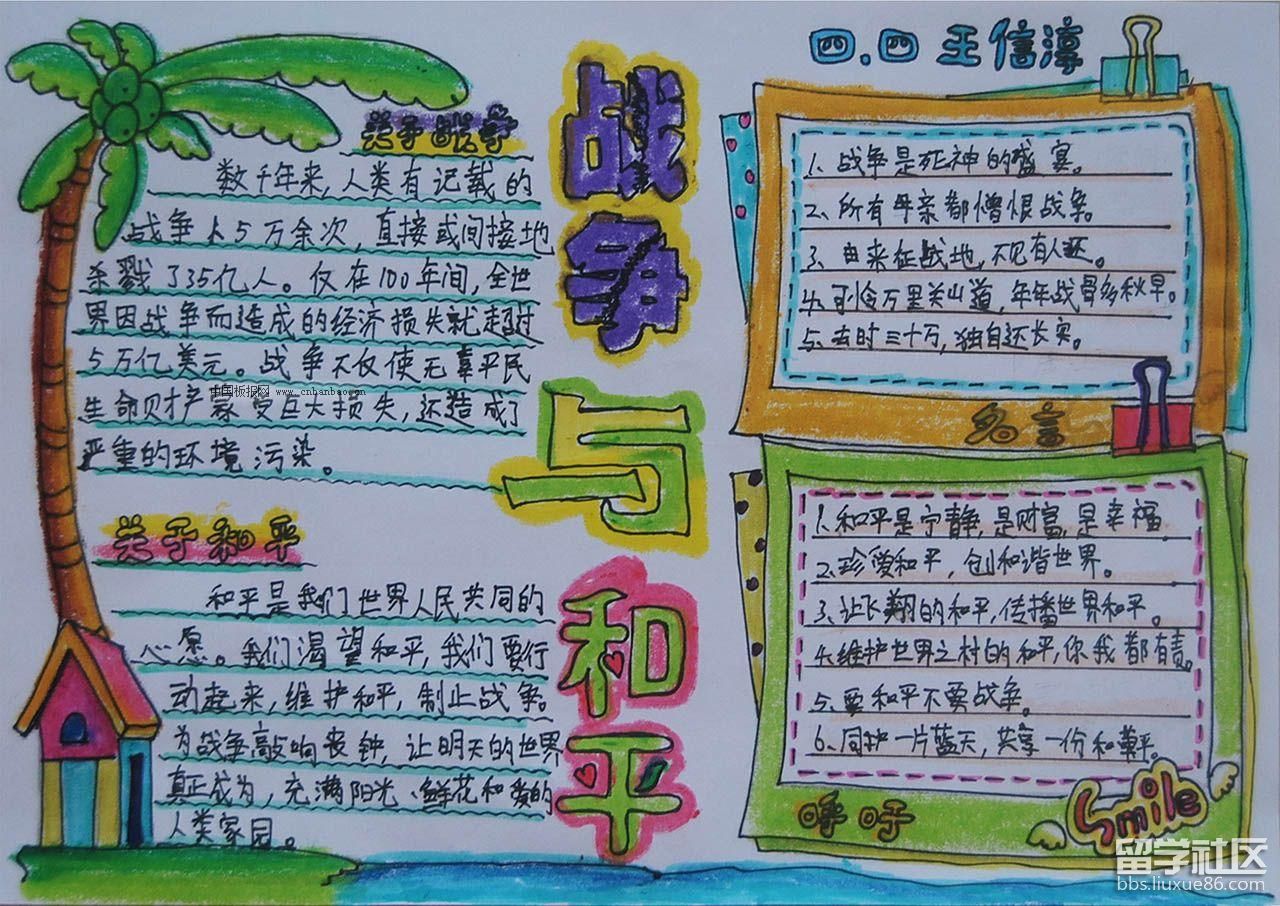 四.四 王信淳
战争与和平
关于战争
数千年来,人类有记载的
战争人5万余次,直接或间接地
杀戮了35亿人。仅在100年间,全世
界因战争而造成的经济损失就超过
5万亿美元。战争不仅使无辜平民
生命财产蒙受巨大损失,还造成了
严重的环境污染。
中国板报网 www.cnbanbao.cn
关于和平
和平是我们世界人民共同的
心愿。我们渴望和平,我们要行
动起来,维护和平,制止战争。
为战争敲响丧钟,让明天的世界
真正成为,充满阳光、鲜花和爱的
人类家园。
1.战争是死神的盛宴。
2、所有母亲都憎恨战争。
3、由来征战地,不见有人还。
4.可怜万里关山道,年年战骨多秋草。
5、去时三十万,独自还长安。
名言
1.和平是宁静,是财富,是幸福
2、珍爱和平,创和谐世界。
3、让飞翔的和平,传播世界和平。
4.维护世界之村的和平,你我都有责。
5、要和平不要战争。
6、同护一片蓝天,共享一份和平。
呼吁
Smile
留学社区
bbs.liuxue86.com